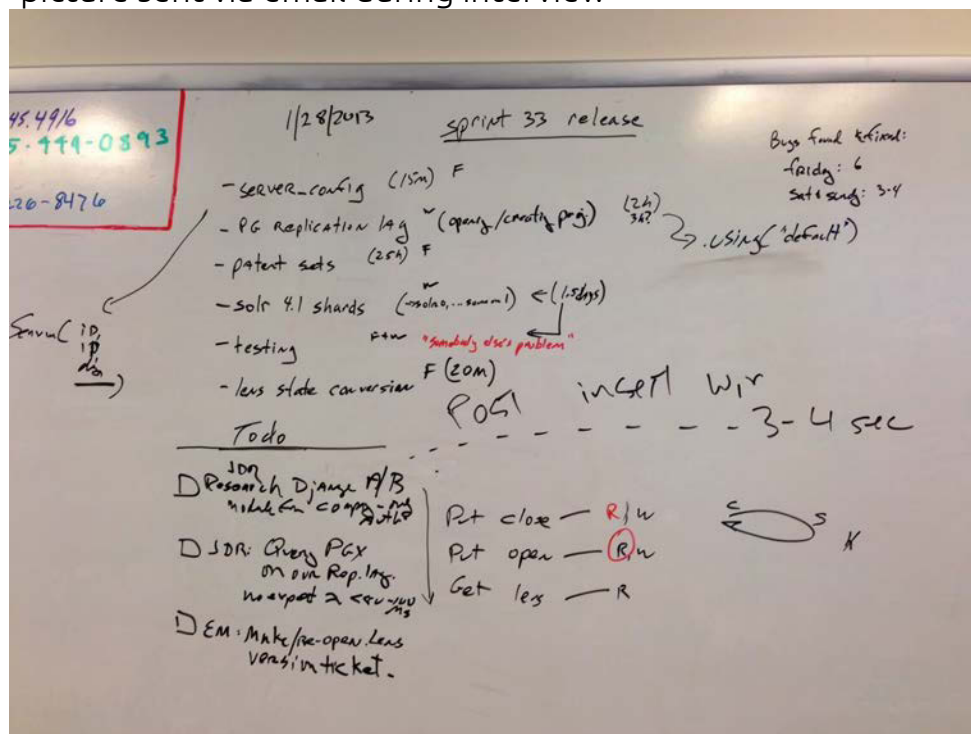 picture sent via email during interview
45.4916
5.449-0893
226-8476
1/28/2013
sprint 33 release
Bugs found & fixed:
friday: 6
sat & sunday: 3-4
- server_config (15m) F
- PG Replication lag (opening/creating proj) (2h)
3h?
.using("default")
- patent sets (25h) F
- solr 4.1 shards (1.5days)
- testing F+W "somebody else's problem"
- lens state conversion F (20m)
Server( ID,
IP,
)
Post insert W,r
3-4 sec
Todo
JDR
Research Django A/B
JDR: Query PGX
on our Rep. lag.
EM: Make/re-open Lens
version ticket.
Put close — R, W
Put open — R, W
Get lens — R
C
S
K